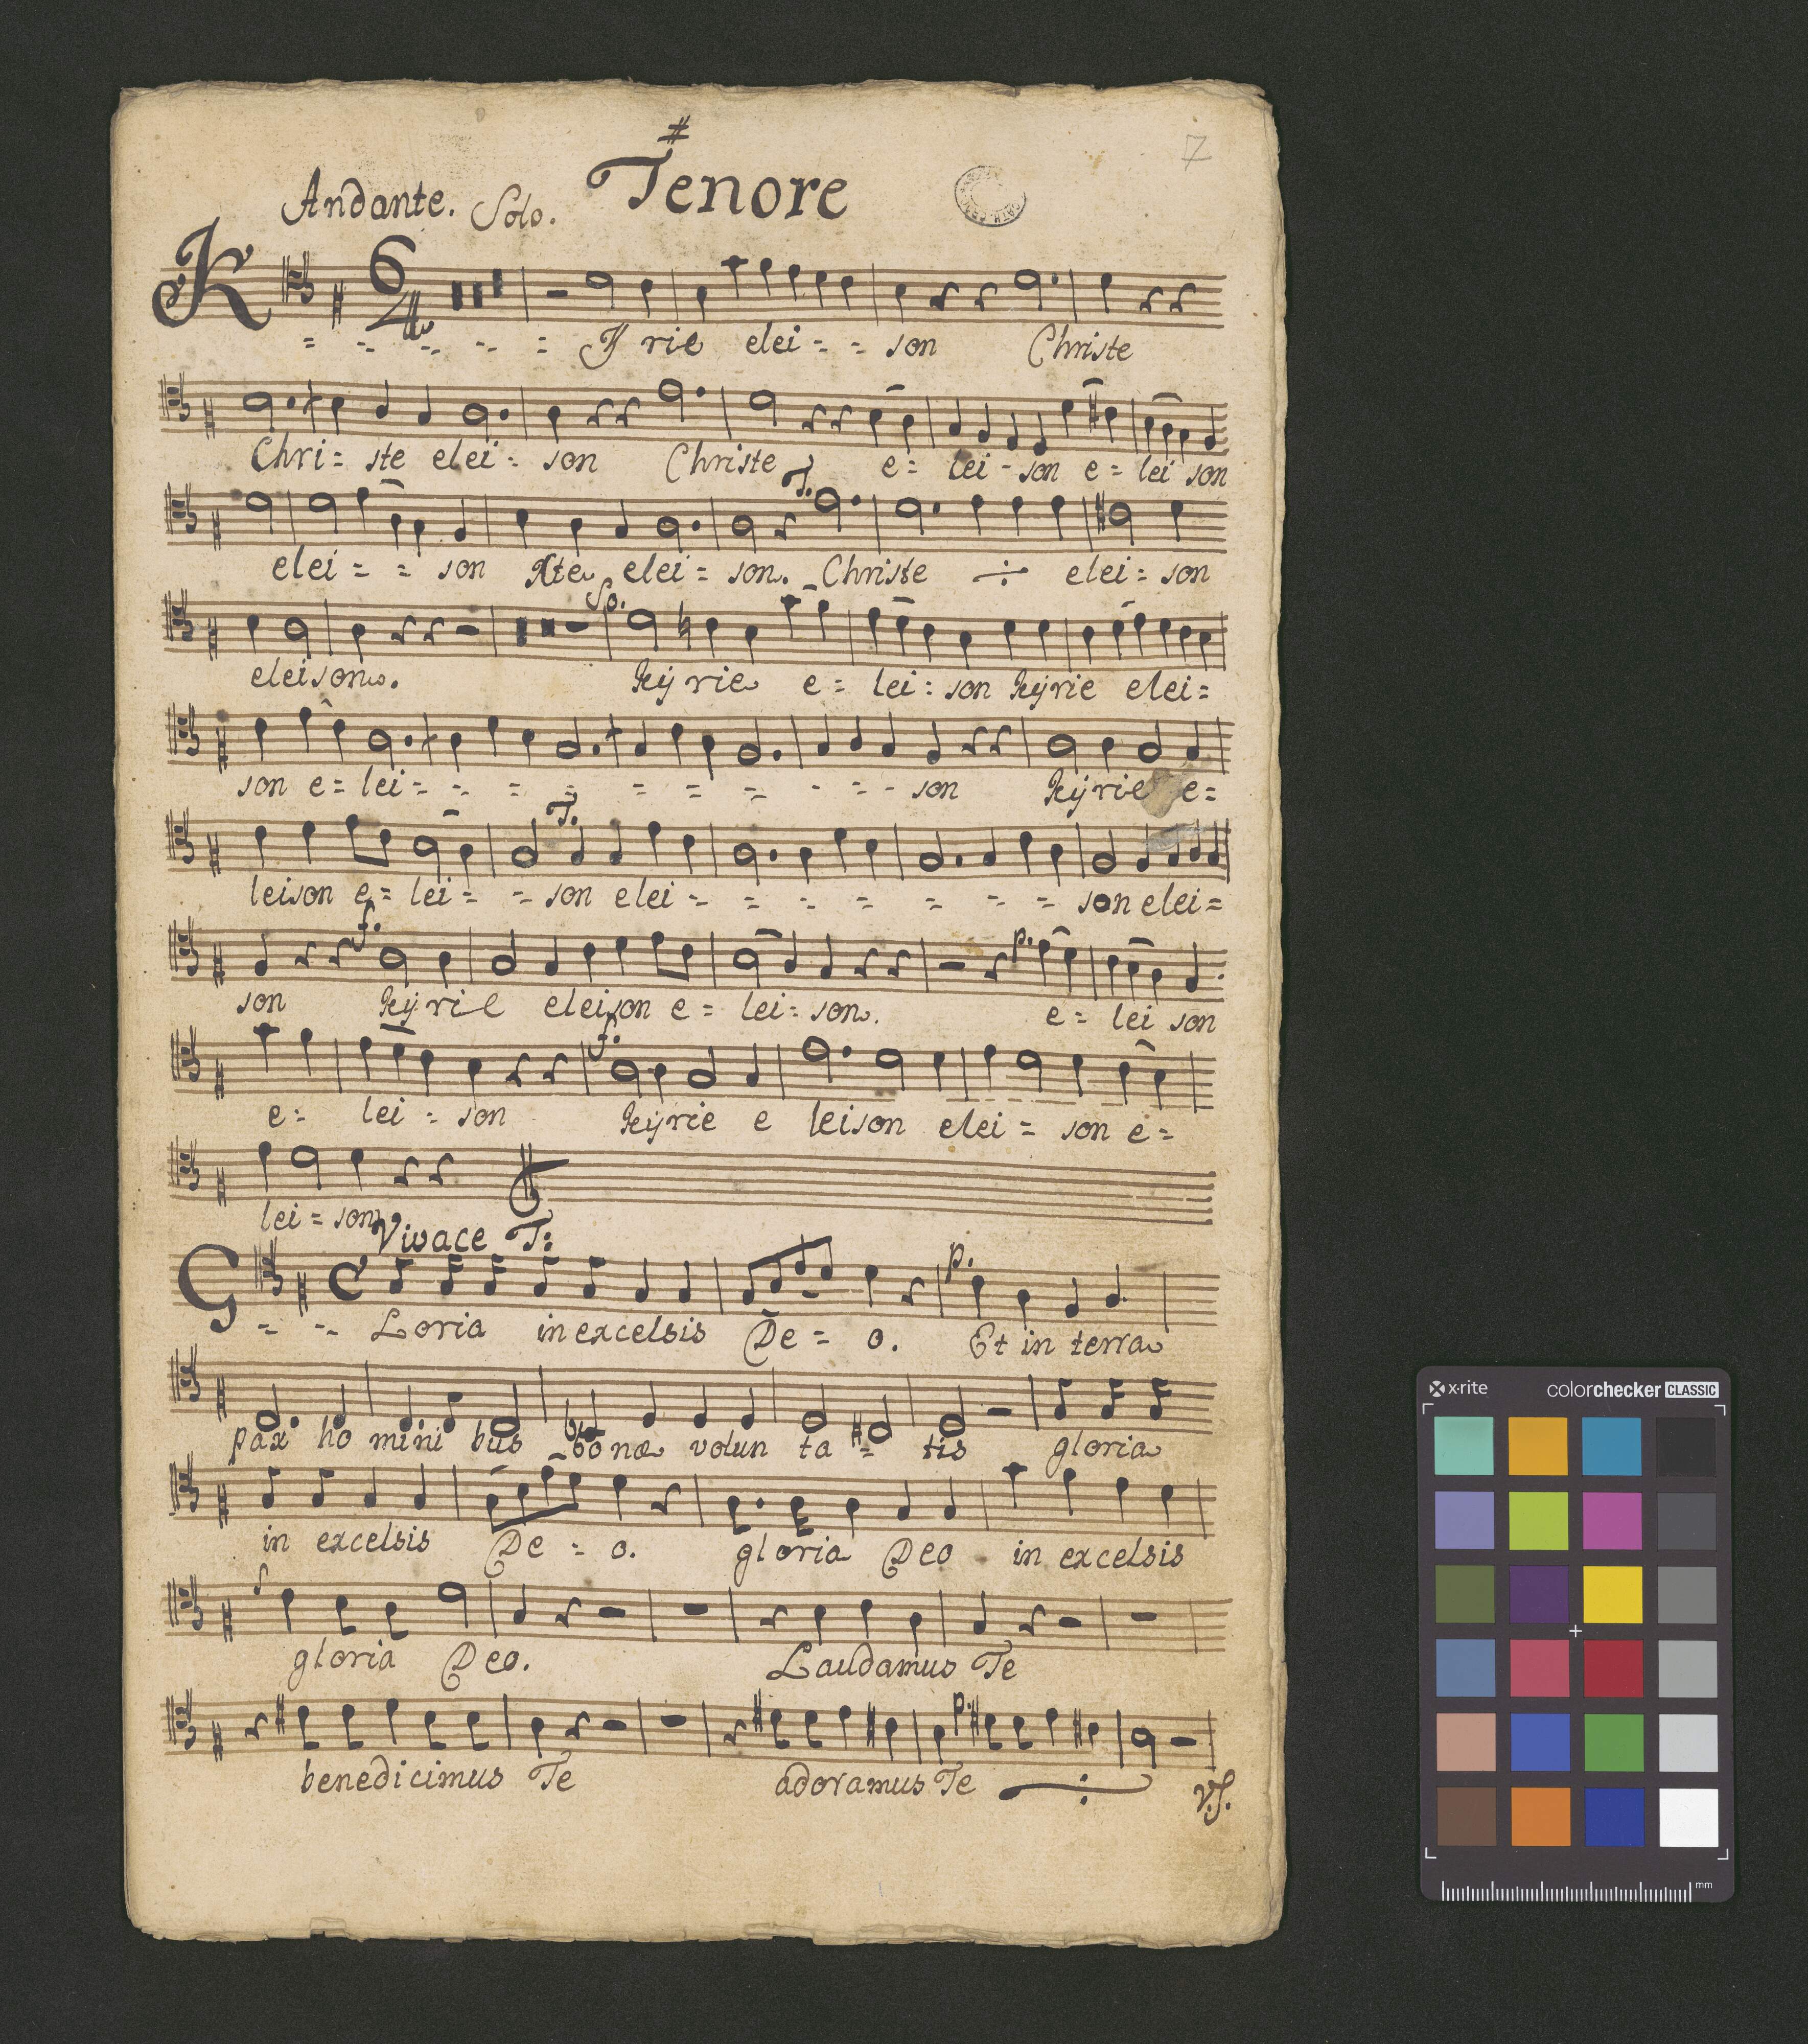 #
7
Tenore
Andante. Solo.
K
6/4
= = = = = Y rie elei = = son Christe
Chri = ste elei = son Christe e = lei - son e = lei son
T.
elei = = son Xte elei = son. Christe ÷ elei = son
So.
eleison. Kÿ rie e = lei = son Kÿrie elei =
son e = lei = = = = = = = - = - son Kÿrie e =
T.
leison e = lei = = son elei = = = = = = = son elei =
f.
p.
son Kÿ rie eleison e = lei = son. e = lei son
f.
e = lei = son Kÿrie e leison elei = son e =
lei = son
Vivace T:
G C p.
= = Loria in excelsis De = o. Et in terra
pax ho mini bus bonæ volun ta = tis gloria
in excelsis De = o. gloria Deo in excelsis
gloria Deo. Laudamus Te
p.
benedicimus Te adoramus Te ÷
V.S.
x-rite colorchecker CLASSIC
mm